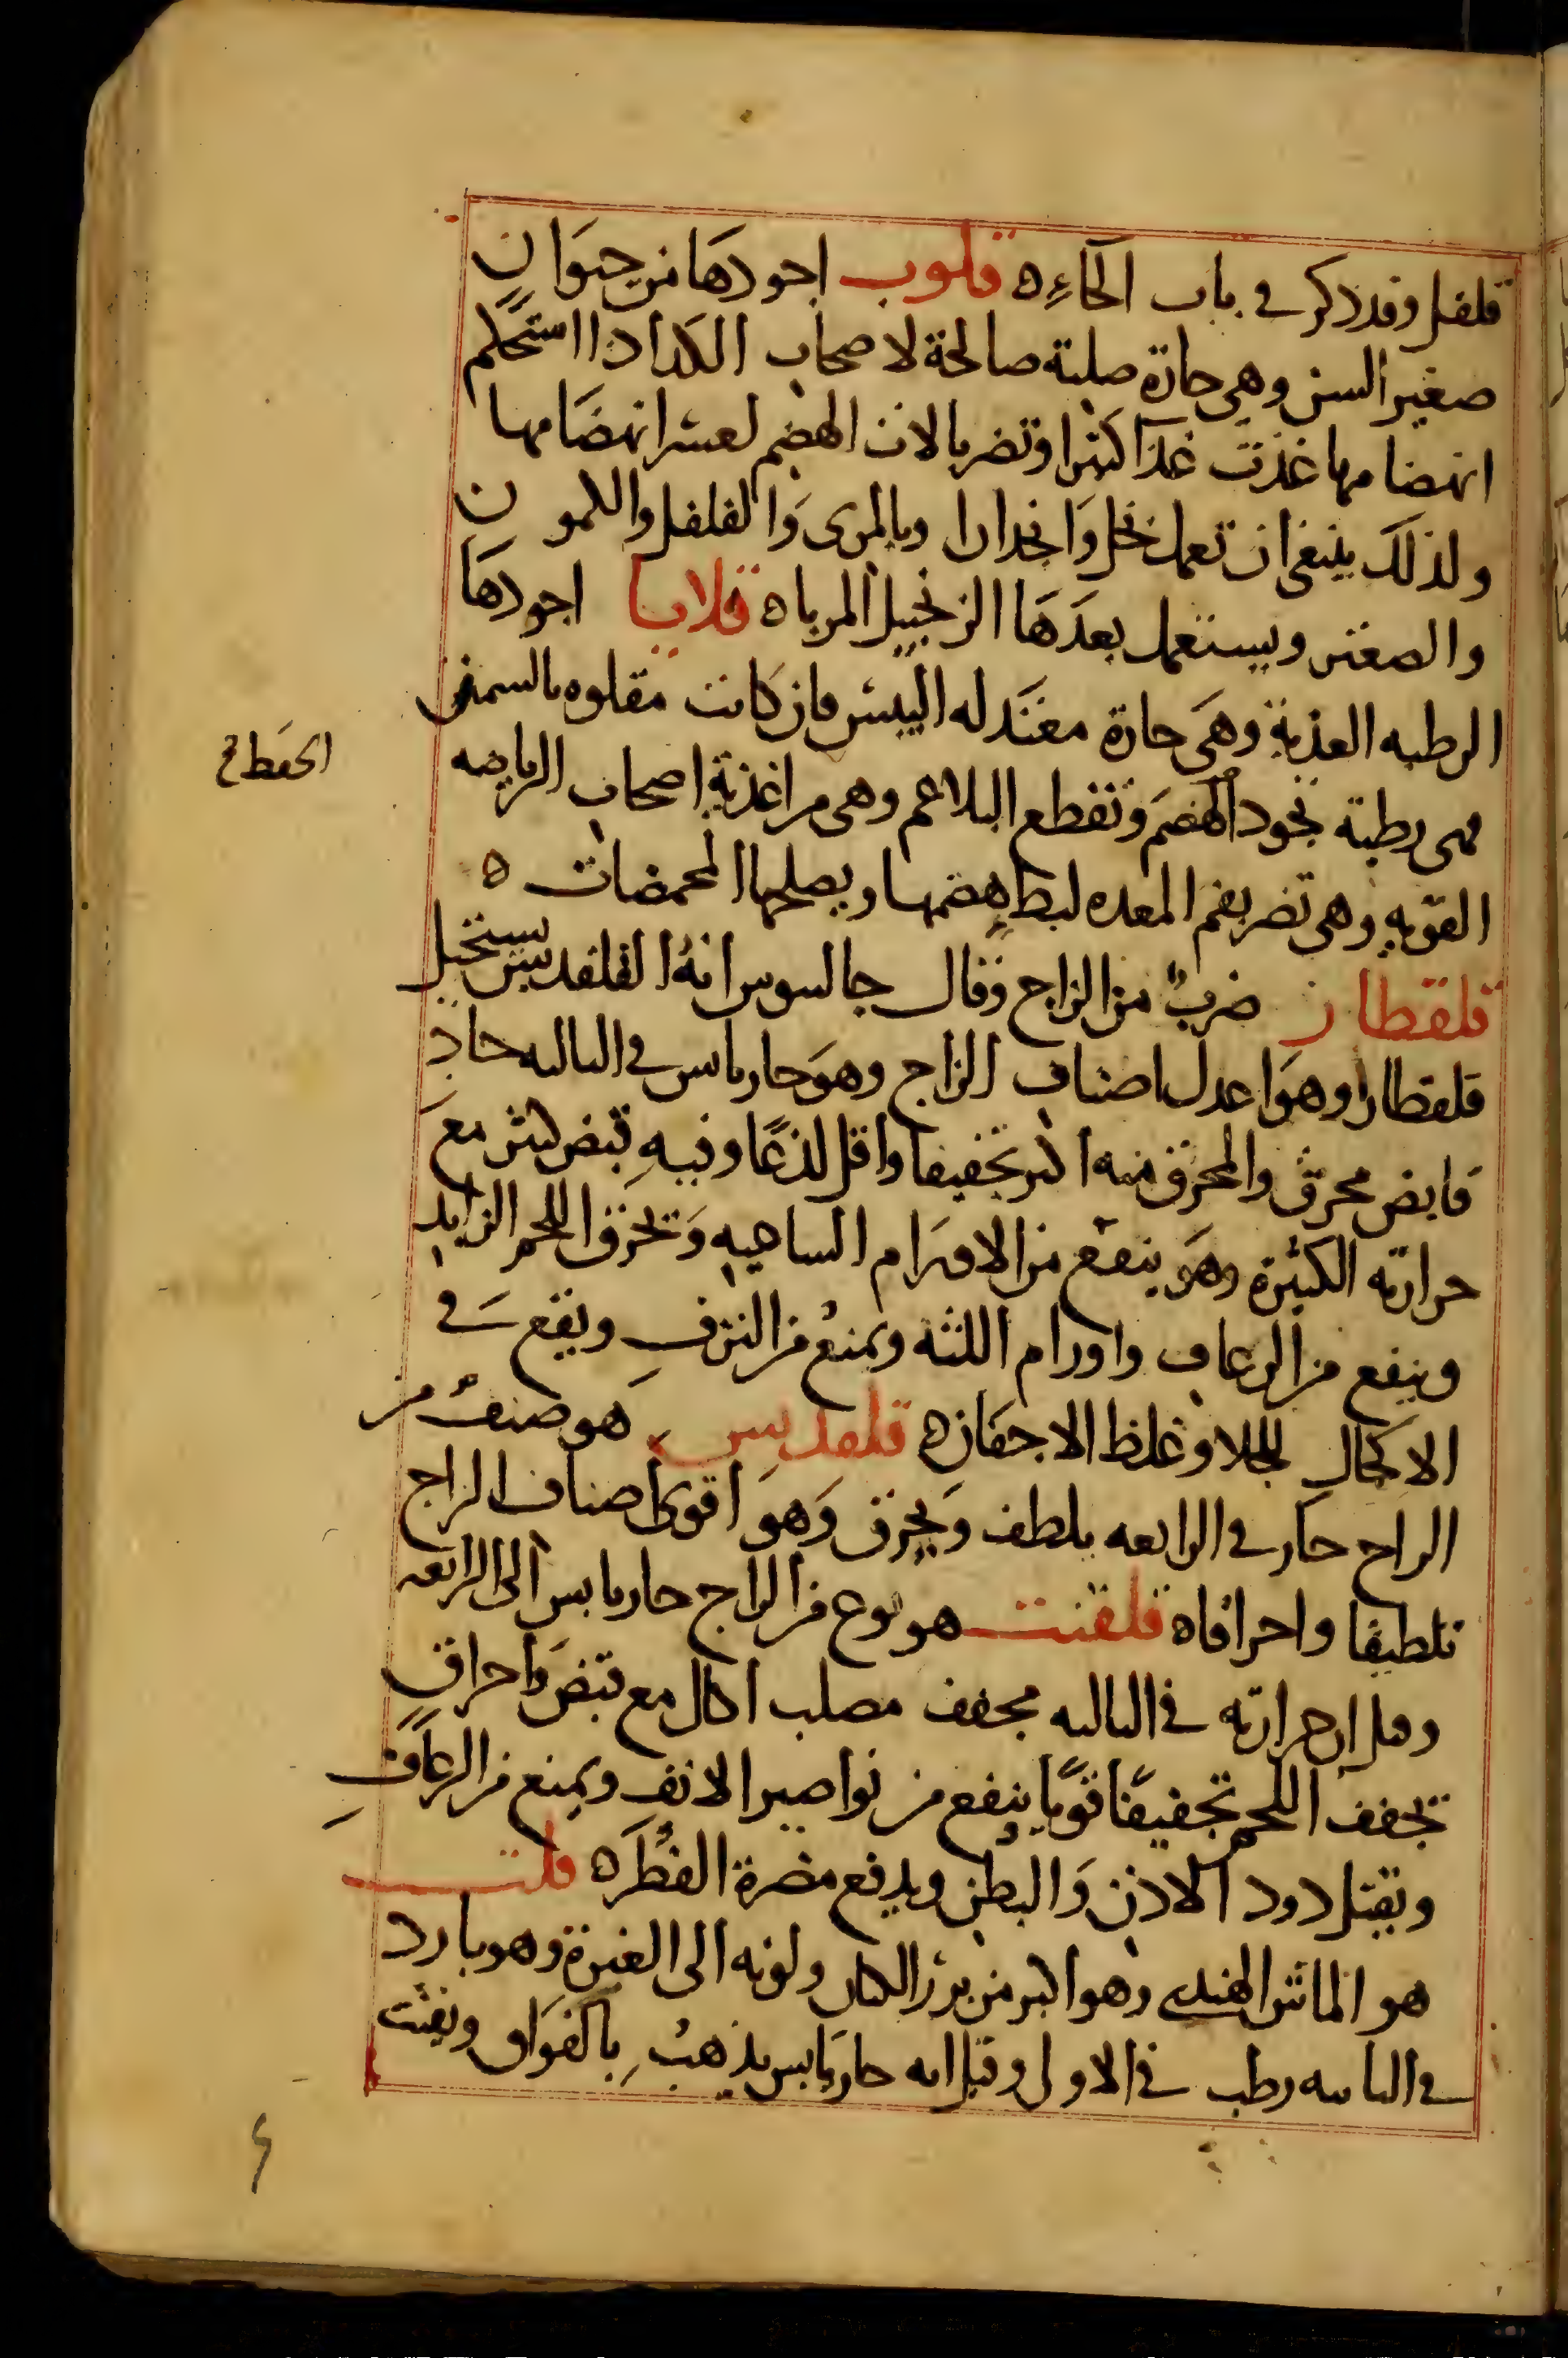 قلفل وقد ذكر في باب الحاء ه قلوب اجودها من حيوان
صغير السن وهي حارة صلبة صالحة لاصحاب الكد اذا استحكم
انهضامها غذت غذآ كثيرا وتضر بالات الهضم لعسر انهضامها
ولذلك ينبغي ان تعمل بخل وانجدان وبالمرى والفلفل والكمون
والصعتر ويستعمل بعدها الزنجبيل المربا ه قلايا اجودها
الرطبه العذبة وهي حارة معتدله اليبس فان كانت مقلوه بالسمن
فهى رطبة تجود الهضم وتقطع البلاغم وهى من اغذية اصحاب الرياضه
القويه وهى تضر بفم المعده لبطء هضمها ويصلحها المحمضات ه
قلقطار ضرب من الزاج وقال جالينوس انه القلقديس يستحيل
قلقطارا وهو اعدل اصناف الزاج وهو حار يابس في الثالثه حاد
قابض محرق والمحرق منه اكثر تجفيفا واقل لذعًا وفيه قبض كثير مع
حرارته الكثيرة وهو ينفع من الاورام الساعيه وتحرق اللحم الزايد
وينفع من الرعاف واورام اللثه ويمنع من النزف ويقع في
الاكحال للجلا وغلظ الاجفان ه قلقديس هو صنف من
الزاج حار في الرابعه يلطف ويحرق وهو اقوى اصناف الزاج
تلطيفا واحراقا ه قلقنت هو نوع من الزاج حار يابس الى الرابعه
وقيل ان حرارته في الثالثه مجفف مصلب اكال مع قبض واحراق
تجفف اللحم تجفيفًا قويًا ينفع من نواصير الانف ويمنع من الرعاف
ويقتل دود الاذن والبطن ويدفع مضرة الفطر ه قلت
هو الماش الهندى وهو اكبر من بزر الكتان ولونه الى الغبرة وهو بارد
في الثانيه رطب في الاولى وقيل انه حار يابس يذهب بالفواق ويفتت